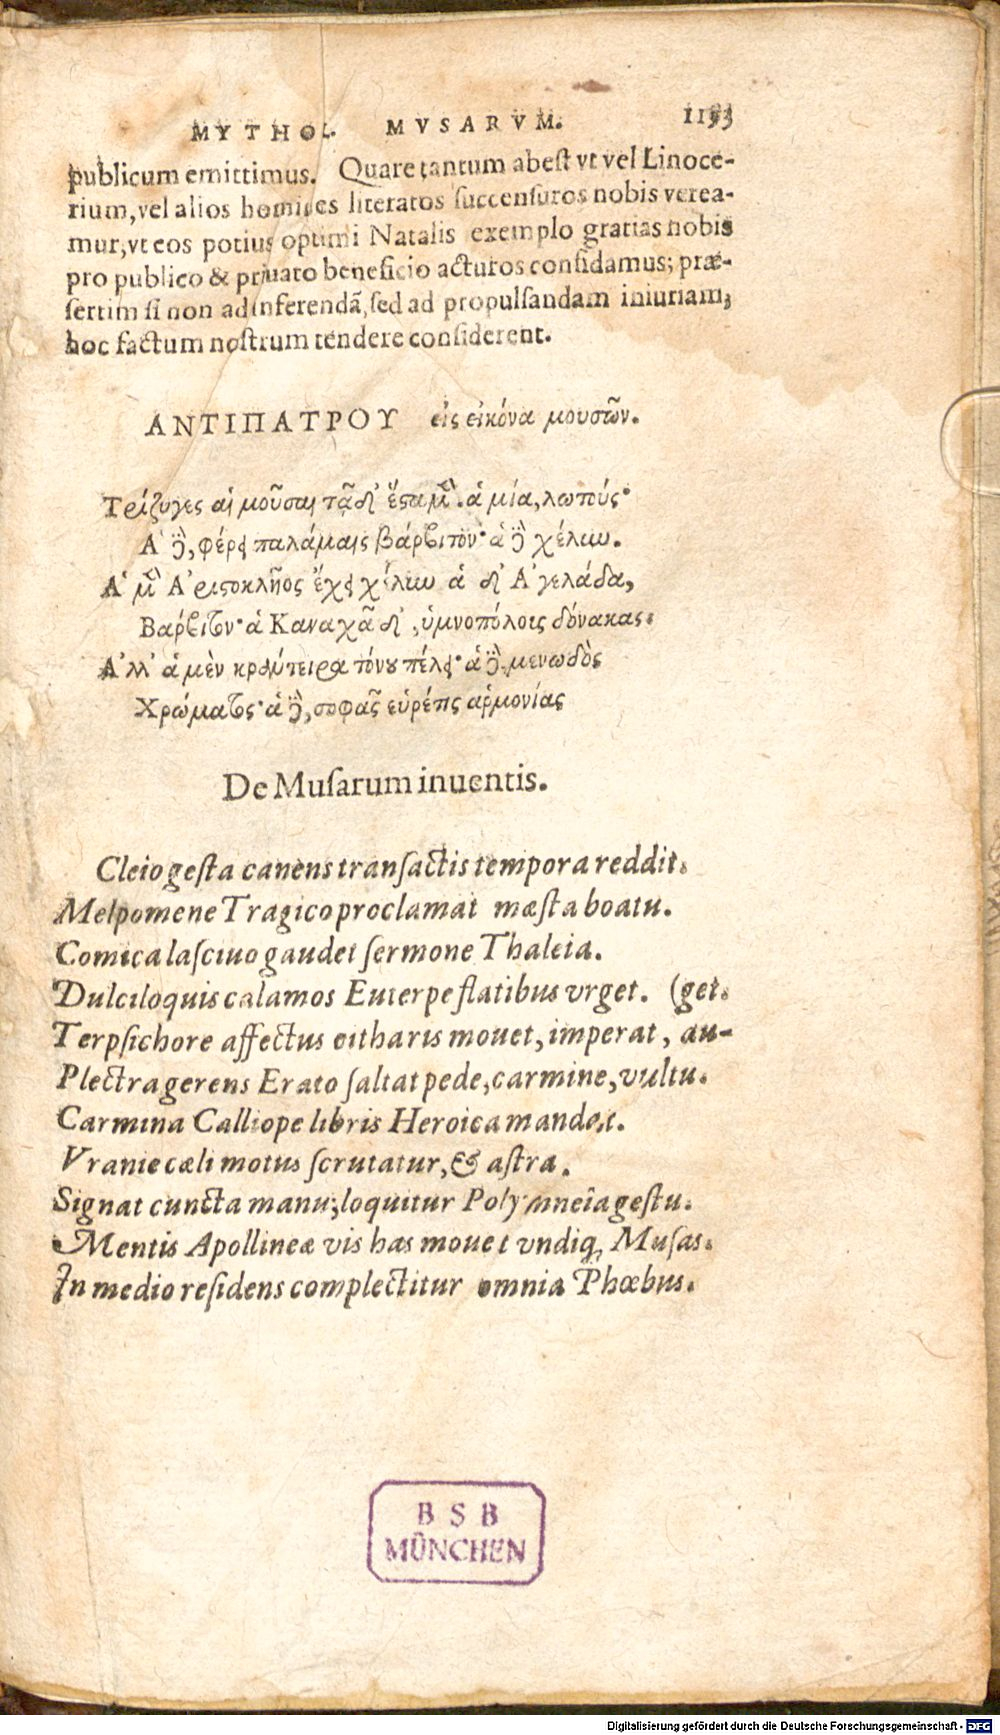 MYTHOL. MVSARVM. 1193
publicum emittimus. Quare tantum abest vt vel Linoce-
rium, vel alios homines literatos succensuros nobis verea-
mur, vt eos potius optimi Natalis exemplo gratias nobis
pro publico & priuato beneficio acturos confidamus; præ-
sertim si non ad inferendã, sed ad propulsandam iniuriam,
hoc factum nostrum tendere considerent.
ΑΝΤΙΠΑΤΡΟΥ εἰς εἰκόνα μουσῶν.
Τρίζυγες αἱ μοῦσαι τᾷδ' ἔσταμ̃. ἁ μία, λωτούς·
Α' δὲ, φέρει παλάμαις βάρβιτον· ἁ δὲ χέλυν.
Α' μ̃ Α'ριστοκλῆος ἔχει χέλυν ἁ δ' Α'γελάδα,
Βάρβιτον· ἁ Καναχᾶ δ', ὑμνοπόλοις δόνακας·
Α'λλ' ἁ μὲν κράντειρα τόνου πέλει· ἁ δὲ μελωδὸς
Χρώματος· ἁ δὲ, σοφᾶς εὑρέτις ἁρμονίας
De Musarum inuentis.
Cleio gesta canens transactis tempora reddit.
Melpomene Tragico proclamat mæsta boatu.
Comica lasciuo gaudet sermone Thaleia.
Dulciloquis calamos Euterpe flatibus vrget. (get.
Terpsichore affectus citharis mouet, imperat, au-
Plectra gerens Erato saltat pede, carmine, vultu.
Carmina Calliope libris Heroica mandat.
Vranie cæli motus scrutatur, & astra.
Signat cuncta manu; loquitur Polymneia gestu.
Mentis Apollineæ vis has mouet vndiq; Musas.
In medio residens complectitur omnia Phœbus.
B S B
MÜNCHEN
Digitalisierung gefördert durch die Deutsche Forschungsgemeinschaft - DFG